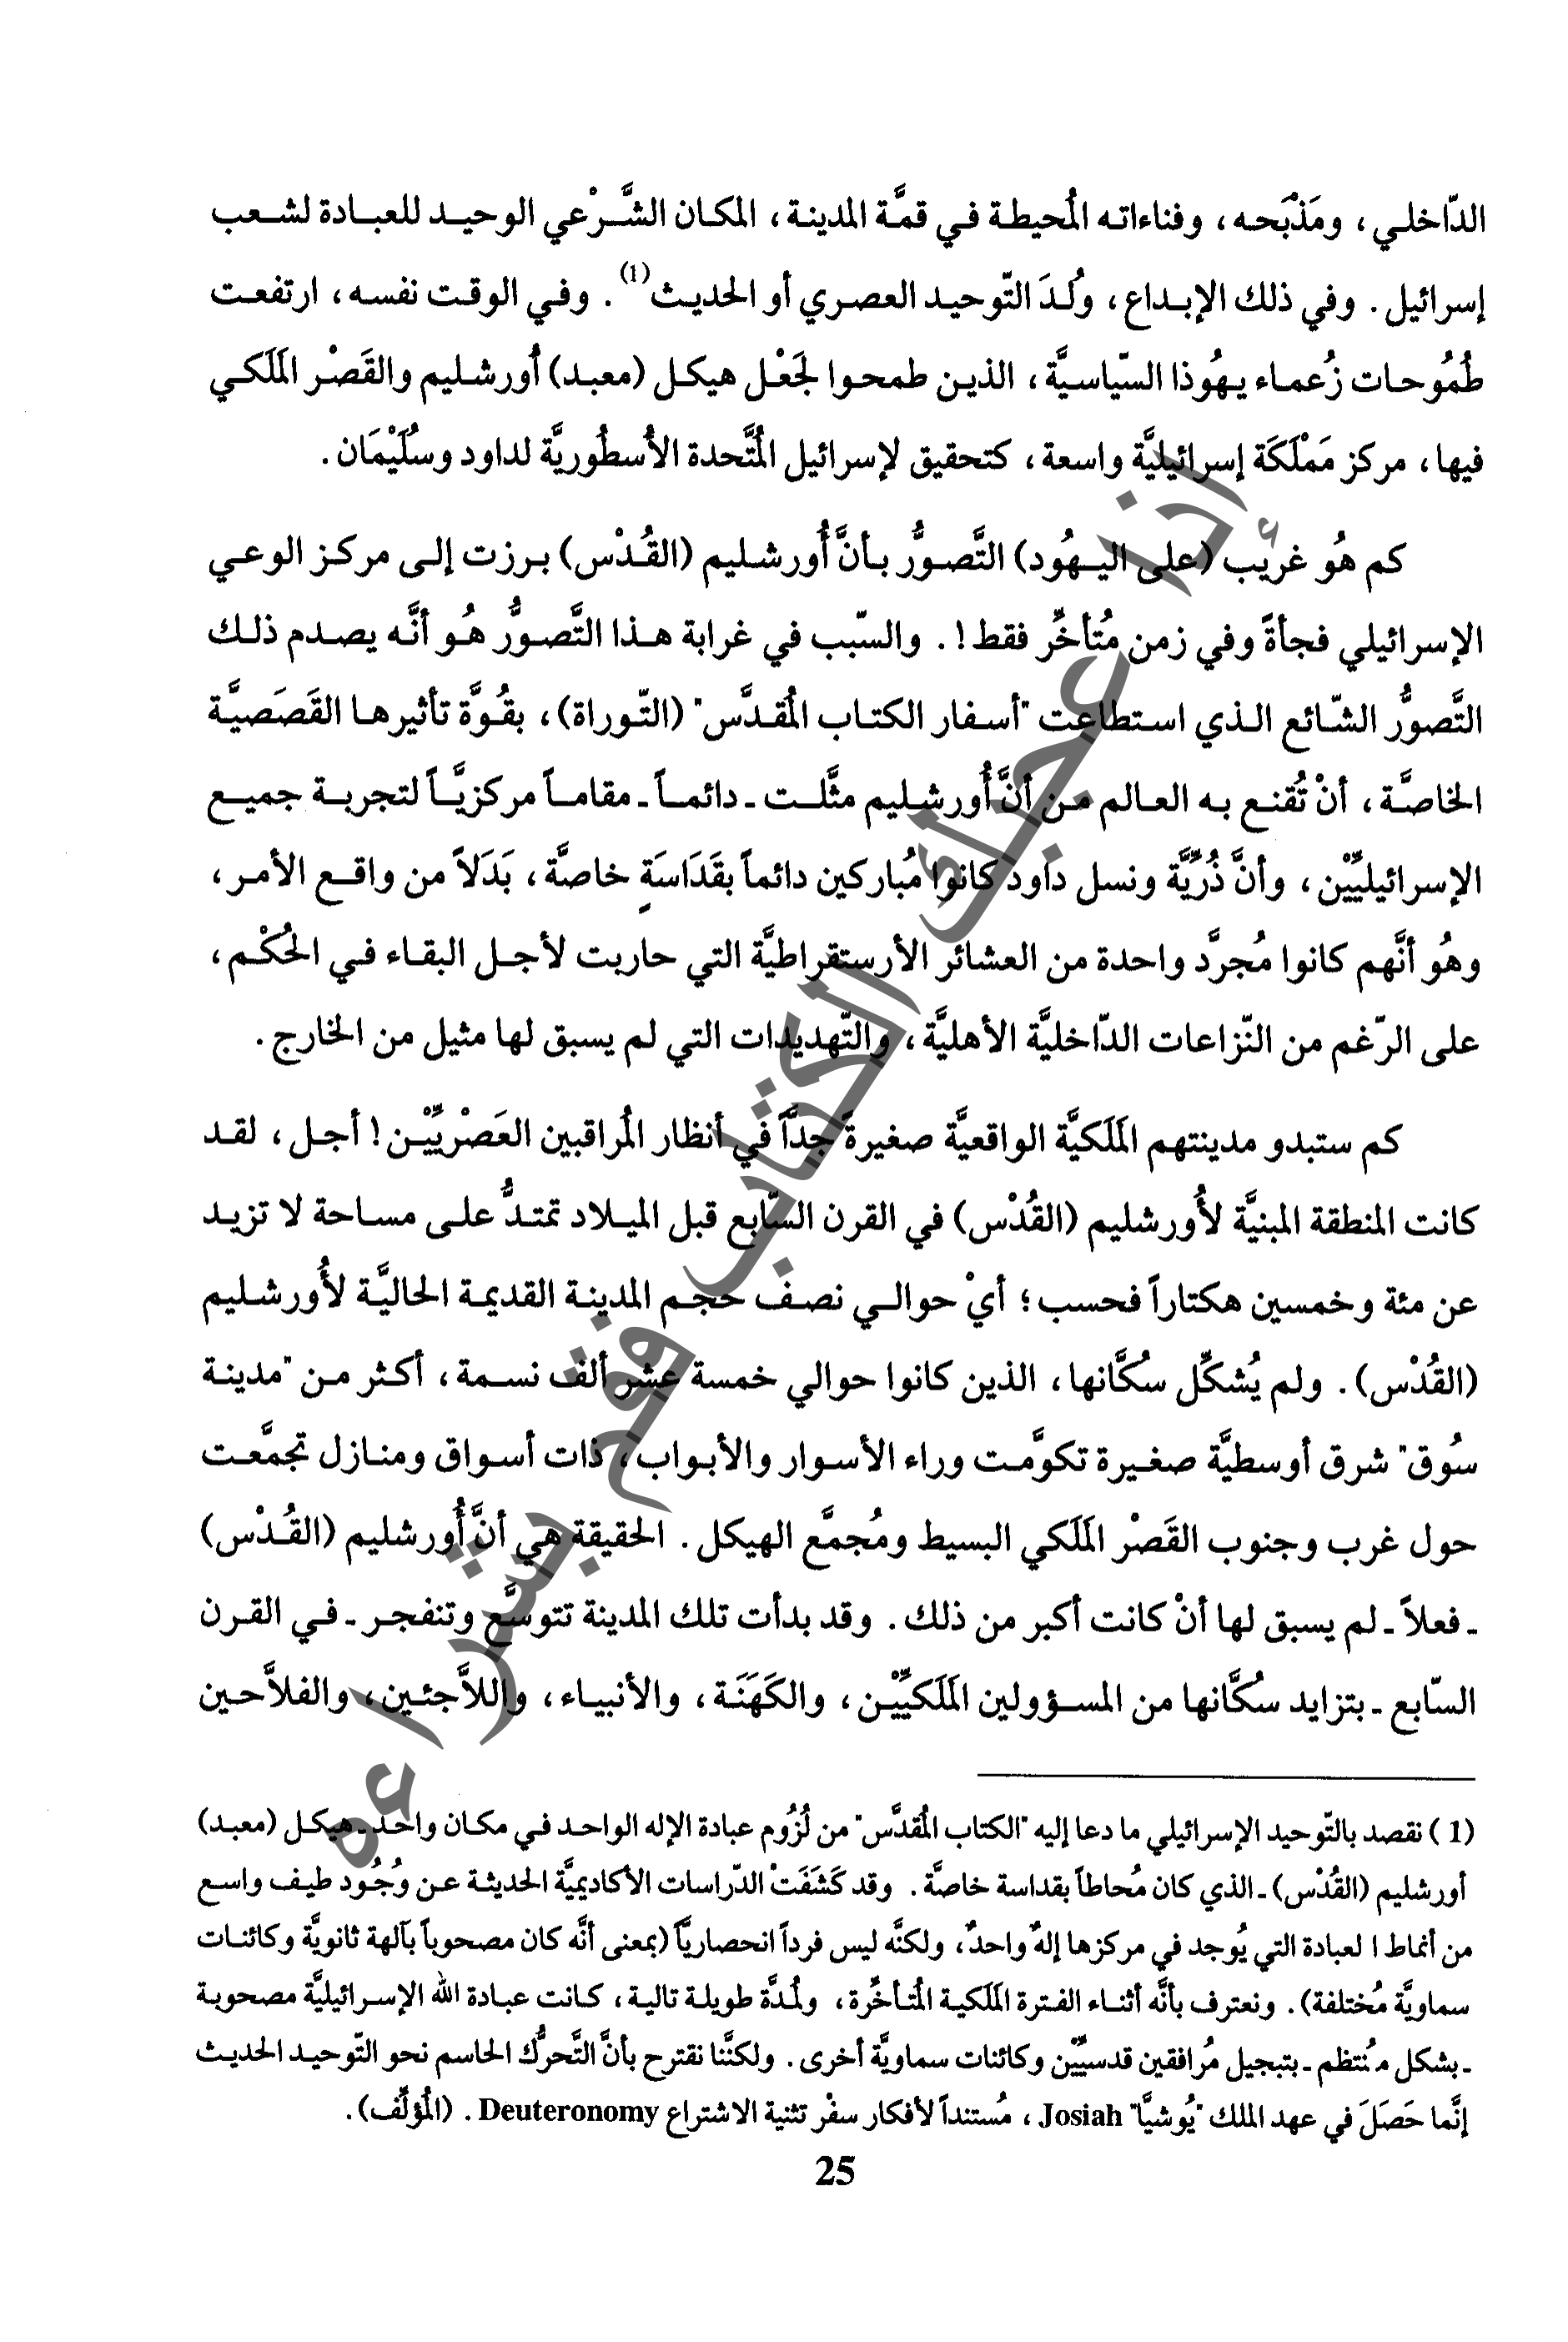 الدّاخلي، ومَذْبَحه، وفناءاته المُحيطة في قمَّة المدينة، المكان الشَّرْعي الوحيد للعبادة لشعب
إسرائيل. وفي ذلك الإبداع، وُلدَ التّوحيد العصري أو الحديث(1). وفي الوقت نفسه، ارتفعت
طُمُوحات زُعماء يهُوذا السّياسيَّة، الذين طمحوا لجَعْل هيكل (معبد) أُورشليم والقَصْر المَلَكي
فيها، مركز مَمْلَكَة إسرائيليَّة واسعة، كتحقيق لإسرائيل المُتَّحدة الأُسطُوريَّة لداود وسُلَيْمَان.
كم هُو غريب (على اليهُود) التَّصوُّر بأنَّ أُورشليم (القُدْس) برزت إلى مركز الوعي
الإسرائيلي فجأةً وفي زمن مُتأخِّر فقط!. والسّبب في غرابة هذا التَّصوُّر هُو أنَّه يصدم ذلك
التَّصوُّر الشّائع الذي استطاعت "أسفار الكتاب المُقدَّس" (التّوراة)، بقُوَّة تأثيرها القَصَصيَّة
الخاصَّة، أنْ تُقنع به العالم من أنَّ أُورشليم مثَّلت ـ دائماً ـ مقاماً مركزيَّاً لتجربة جميع
الإسرائيليِّيْن، وأنَّ ذُرِّيَّة ونسل داود كانوا مُباركين دائماً بقَدَاسَةٍ خاصَّة، بَدَلاً من واقع الأمر،
وهُو أنَّهم كانوا مُجرَّد واحدة من العشائر الأرستقراطيَّة التي حاربت لأجل البقاء في الحُكْم،
على الرّغم من النّزاعات الدّاخليَّة الأهليَّة، والتّهديدات التي لم يسبق لها مثيل من الخارج.
كم ستبدو مدينتهم المَلَكيَّة الواقعيَّة صغيرةً جدَّاً في أنظار المُراقبين العَصْريِّيْن! أجل، لقد
كانت المنطقة المبنيَّة لأُورشليم (القُدْس) في القرن السّابع قبل الميلاد تمتدُّ على مساحة لا تزيد
عن مئة وخمسين هكتاراً فحسب؛ أيْ حوالي نصف حجم المدينة القديمة الحاليَّة لأُورشليم
(القُدْس). ولم يُشكِّل سُكَّانها، الذين كانوا حوالي خمسة عشر ألف نسمة، أكثر من "مدينة
سُوق" شرق أوسطيَّة صغيرة تكوَّمت وراء الأسوار والأبواب، ذات أسواق ومنازل تجمَّعت
حول غرب وجنوب القَصْر المَلَكي البسيط ومُجمَّع الهيكل. الحقيقة هي أنَّ أُورشليم (القُدْس)
ـ فعلاً ـ لم يسبق لها أنْ كانت أكبر من ذلك. وقد بدأت تلك المدينة تتوسَّع وتنفجر ـ في القرن
السّابع ـ بتزايد سُكَّانها من المسؤولين المَلَكيِّيْن، والكَهَنَة، والأنبياء، واللاَّجئين، والفلاَّحين
(1) نقصد بالتّوحيد الإسرائيلي ما دعا إليه "الكتاب المُقدَّس" من لُزُوم عبادة الإله الواحد في مكان واحد ـ هيكل (معبد)
أورشليم (القُدْس) ـ الذي كان مُحاطاً بقداسة خاصَّة. وقد كَشَفَتْ الدّراسات الأكاديميَّة الحديثة عن وُجُود طيف واسع
من أنماط ا لعبادة التي يُوجد في مركزها إلهٌ واحدٌ، ولكنَّه ليس فرداً انحصاريَّاً (بمعنى أنَّه كان مصحوباً بآلهة ثانويَّة وكائنات
سماويَّة مُختلفة). ونعترف بأنَّه أثناء الفترة المَلَكية المُتأخِّرة، ولمُدَّة طويلة تالية، كانت عبادة الله الإسرائيليَّة مصحوبة
ـ بشكل مُنتظم ـ بتبجيل مُرافقين قدسيِّيْن وكائنات سماويَّة أخرى. ولكنَّنا نقترح بأنَّ التَّحرُّك الحاسم نحو التّوحيد الحديث
إنَّما حَصَلَ في عهد الملك "يُوشيَّا" Josiah، مُستنداً لأفكار سفْر تثنية الاشتراع Deuteronomy. (المُؤلِّف).
25
إذا أعجبك الكتاب فقم بشراءه